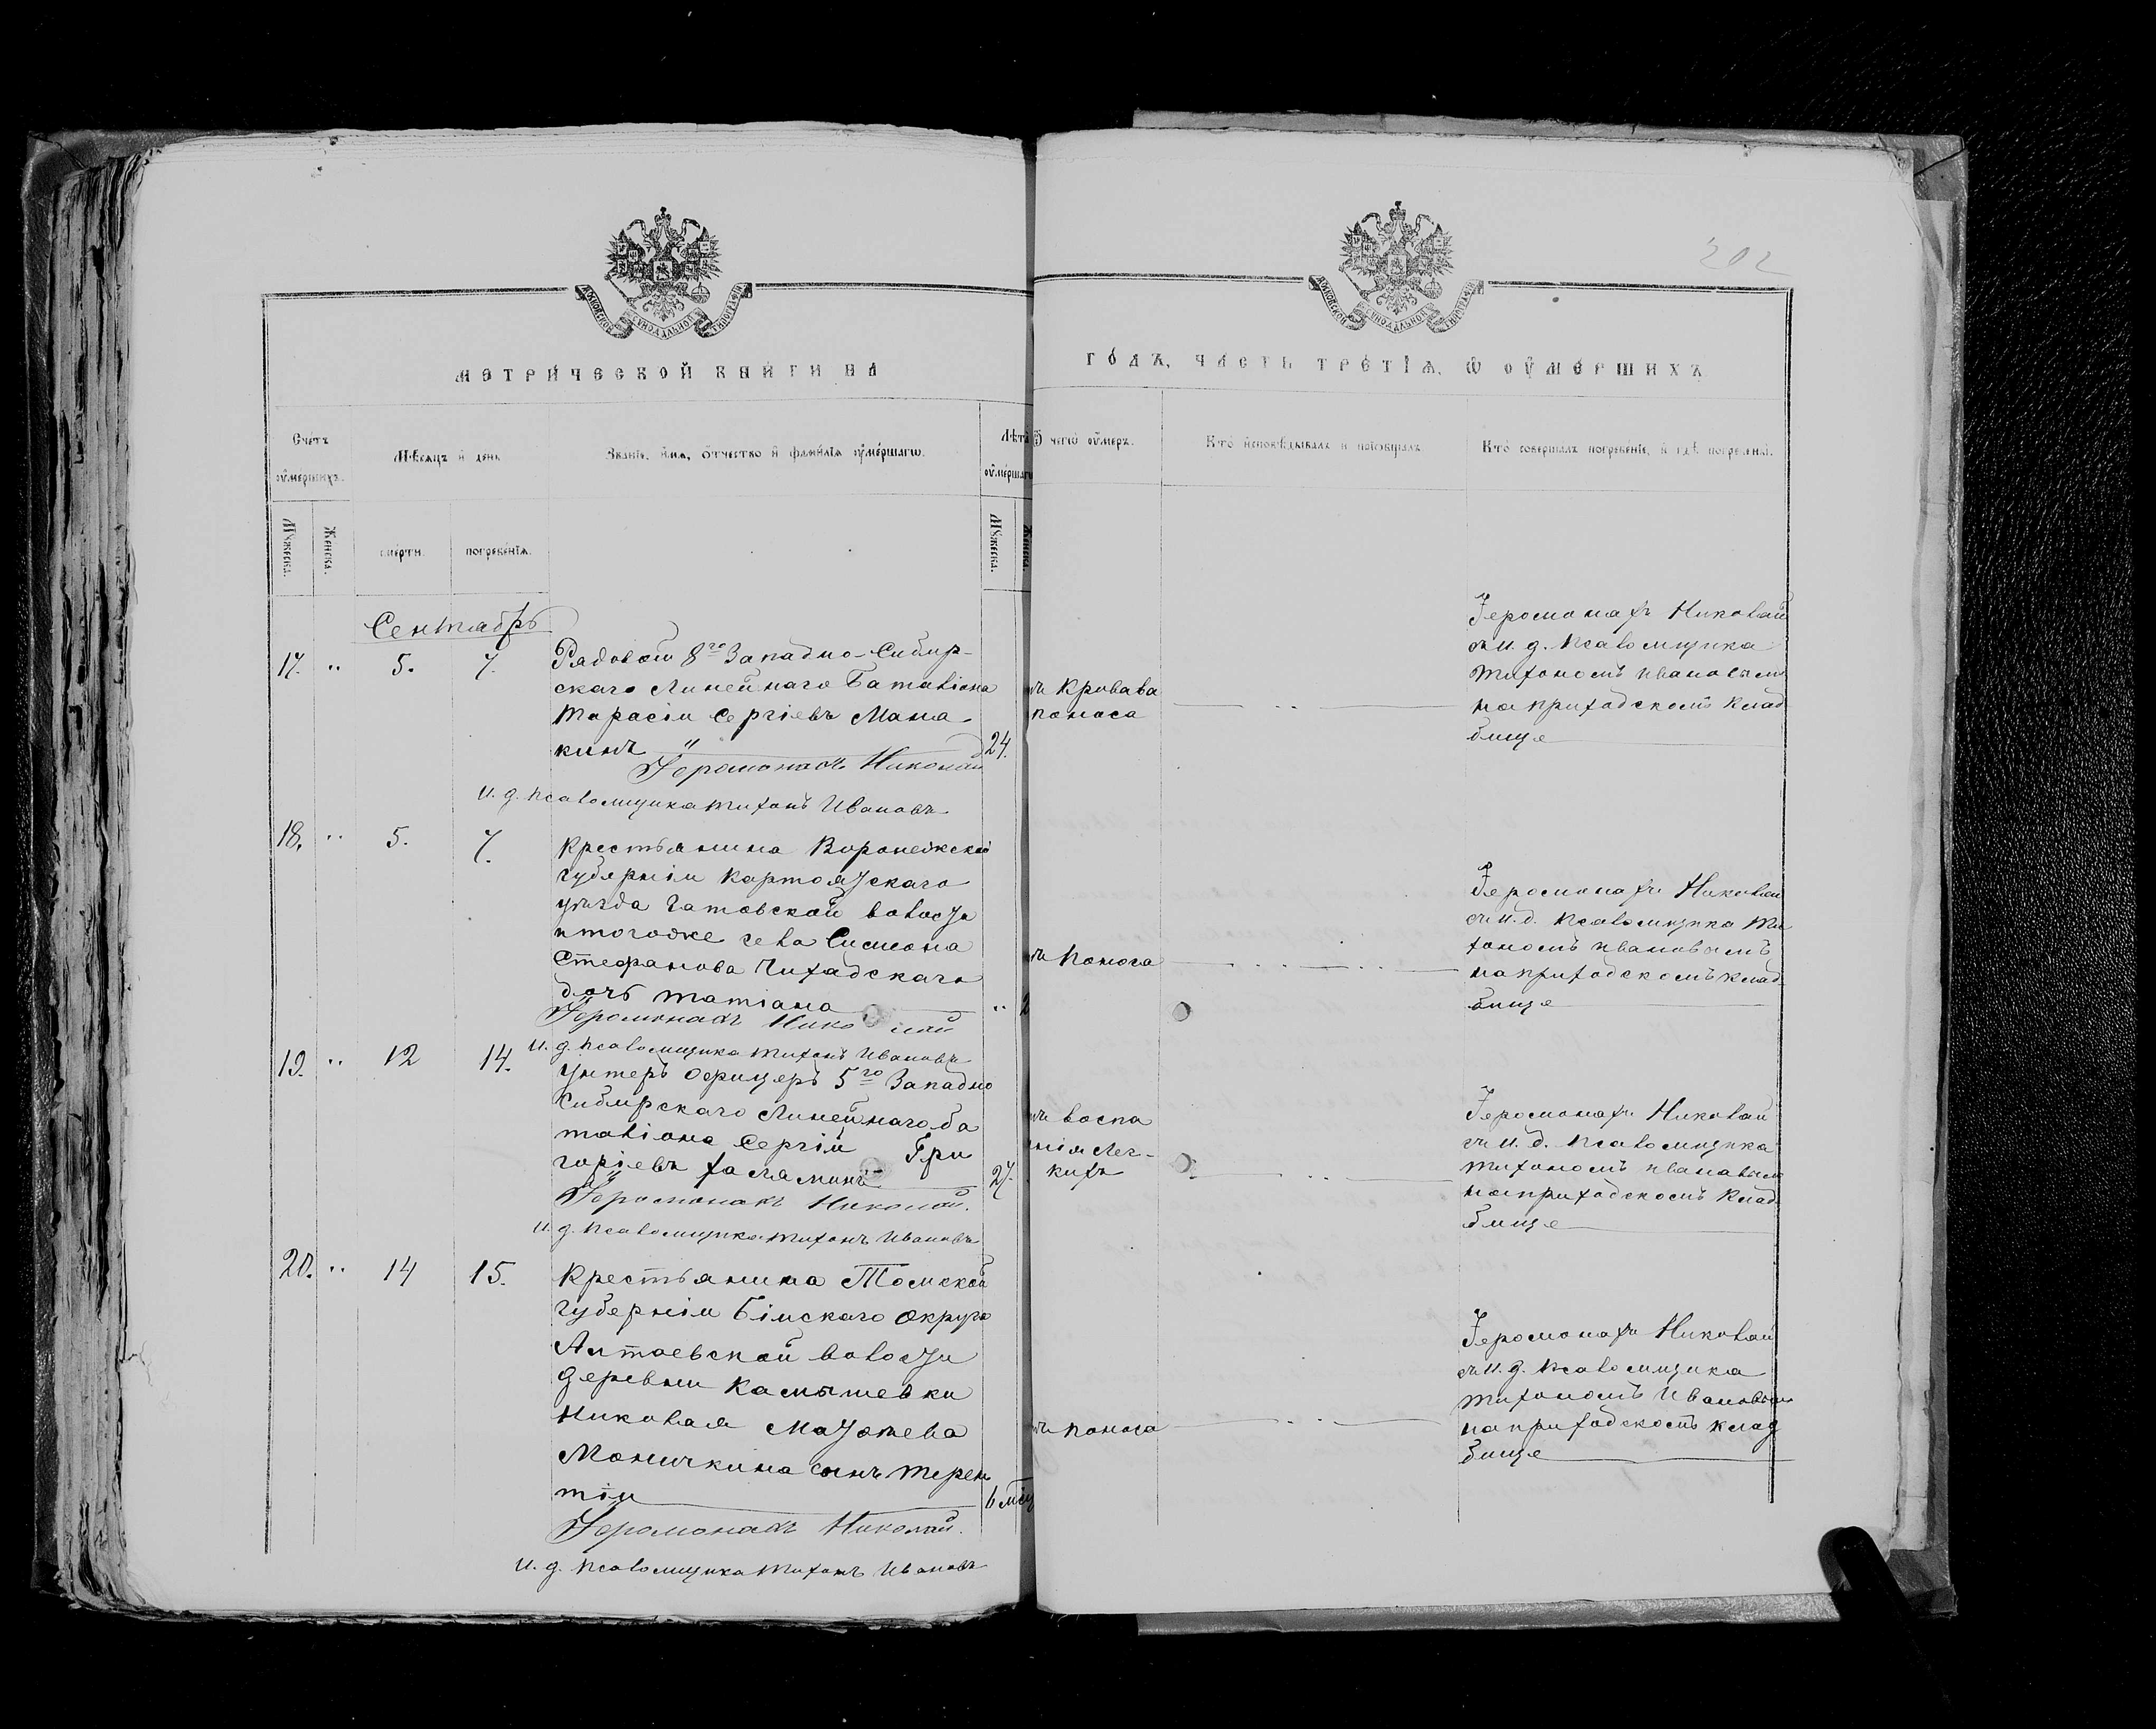 202
МОСКОВСКОЙ СѴНОДАЛЬНОЙ ТИПОГРАФІИ
МОСКОВСКОЙ СѴНОДАЛЬНОЙ ТИПОГРАФІИ
МЕТРИ́ЧЕСКОЙ КНИ́ГИ НА
ГО́ДЪ, ЧАСТЬ ТРЕ́ТІѦ, Ѡ ОУМЕ́РШИХЪ
Сче́тъ оуме́ршихъ.
Мѣсѧцъ и день
Званіе, имѧ, ѻтчество и фамиліѧ оумершагѡ.
Лѣта оумершагѡ
Ѿ чегѡ оумеръ.
Кто исповѣдывалъ и пріобщалъ
Кто совершалъ погребеніе, и гдѣ погребены.
Мꙋжеска.
Женска.
смерти.
погребеніѧ.
Мꙋжеска.
Женска.
Сентябрь
17. " 5. 7.
Рядовой 8го Западно-Сибир-
скаго Линейнаго Баталіона
Тарасій Сергіевъ Мана-
кинъ " 24.
Іеромонахъ Николай
И. д. псаломщика Тихонъ Ивановъ
Кровава
поноса
Іеромонахъ Николай
съ и. д. псаломщика
Тихономъ Ивановым
на приходскомъ клад
бище
18. " 5. 7.
Крестьянина Воронежской
губерніи
уѣзда волости
тогоже села Симеона
Стефанова
дочь Татіана " 2
Іеромонахъ Николай
И. д. псаломщика Тихонъ Ивановъ
поноса
Іеромонахъ Николай
съ и. д. псаломщика Ти
хономъ Ивановымъ
на приходскомъ клад
бище
19. " 12 14.
Унтеръ офицеръ 5го Западно
Сибирскаго Линейнаго ба
таліона Сергій Гри
горіевъ 27.
Іеромонахъ Николай.
И. д. псаломщика Тихонъ Ивановъ
воспа
нія лег-
кихъ
Іеромонахъ Николай
съ и. д. псаломщика
Тихономъ Ивановым
на приходскомъ клад
бище
20. " 14 15.
Крестьянина Томской
губерніи Бійскаго округа
Алтаевской волости
деревни Камышевки
Николая
Моничкина сынъ Терен
тій 6 мѣсц
Іеромонахъ Николай.
И. д. псаломщика Тихонъ Ивановъ
поноса
Іеромонахъ Николай
съ и. д. псаломщика
Тихономъ Ивановым
на приходскомъ клад
бище